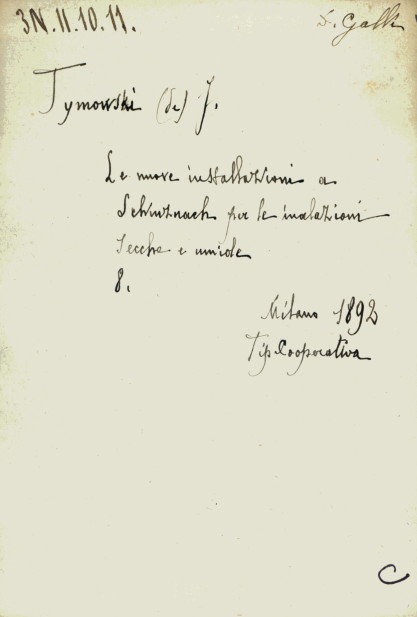 3N.II.10.11.
D. Galli
Tymowski (de) J.
Le nuove installazioni a
Schinznach per le inalazioni
secche e umide
8.
Milano 1892
Tip Cooperativa
C